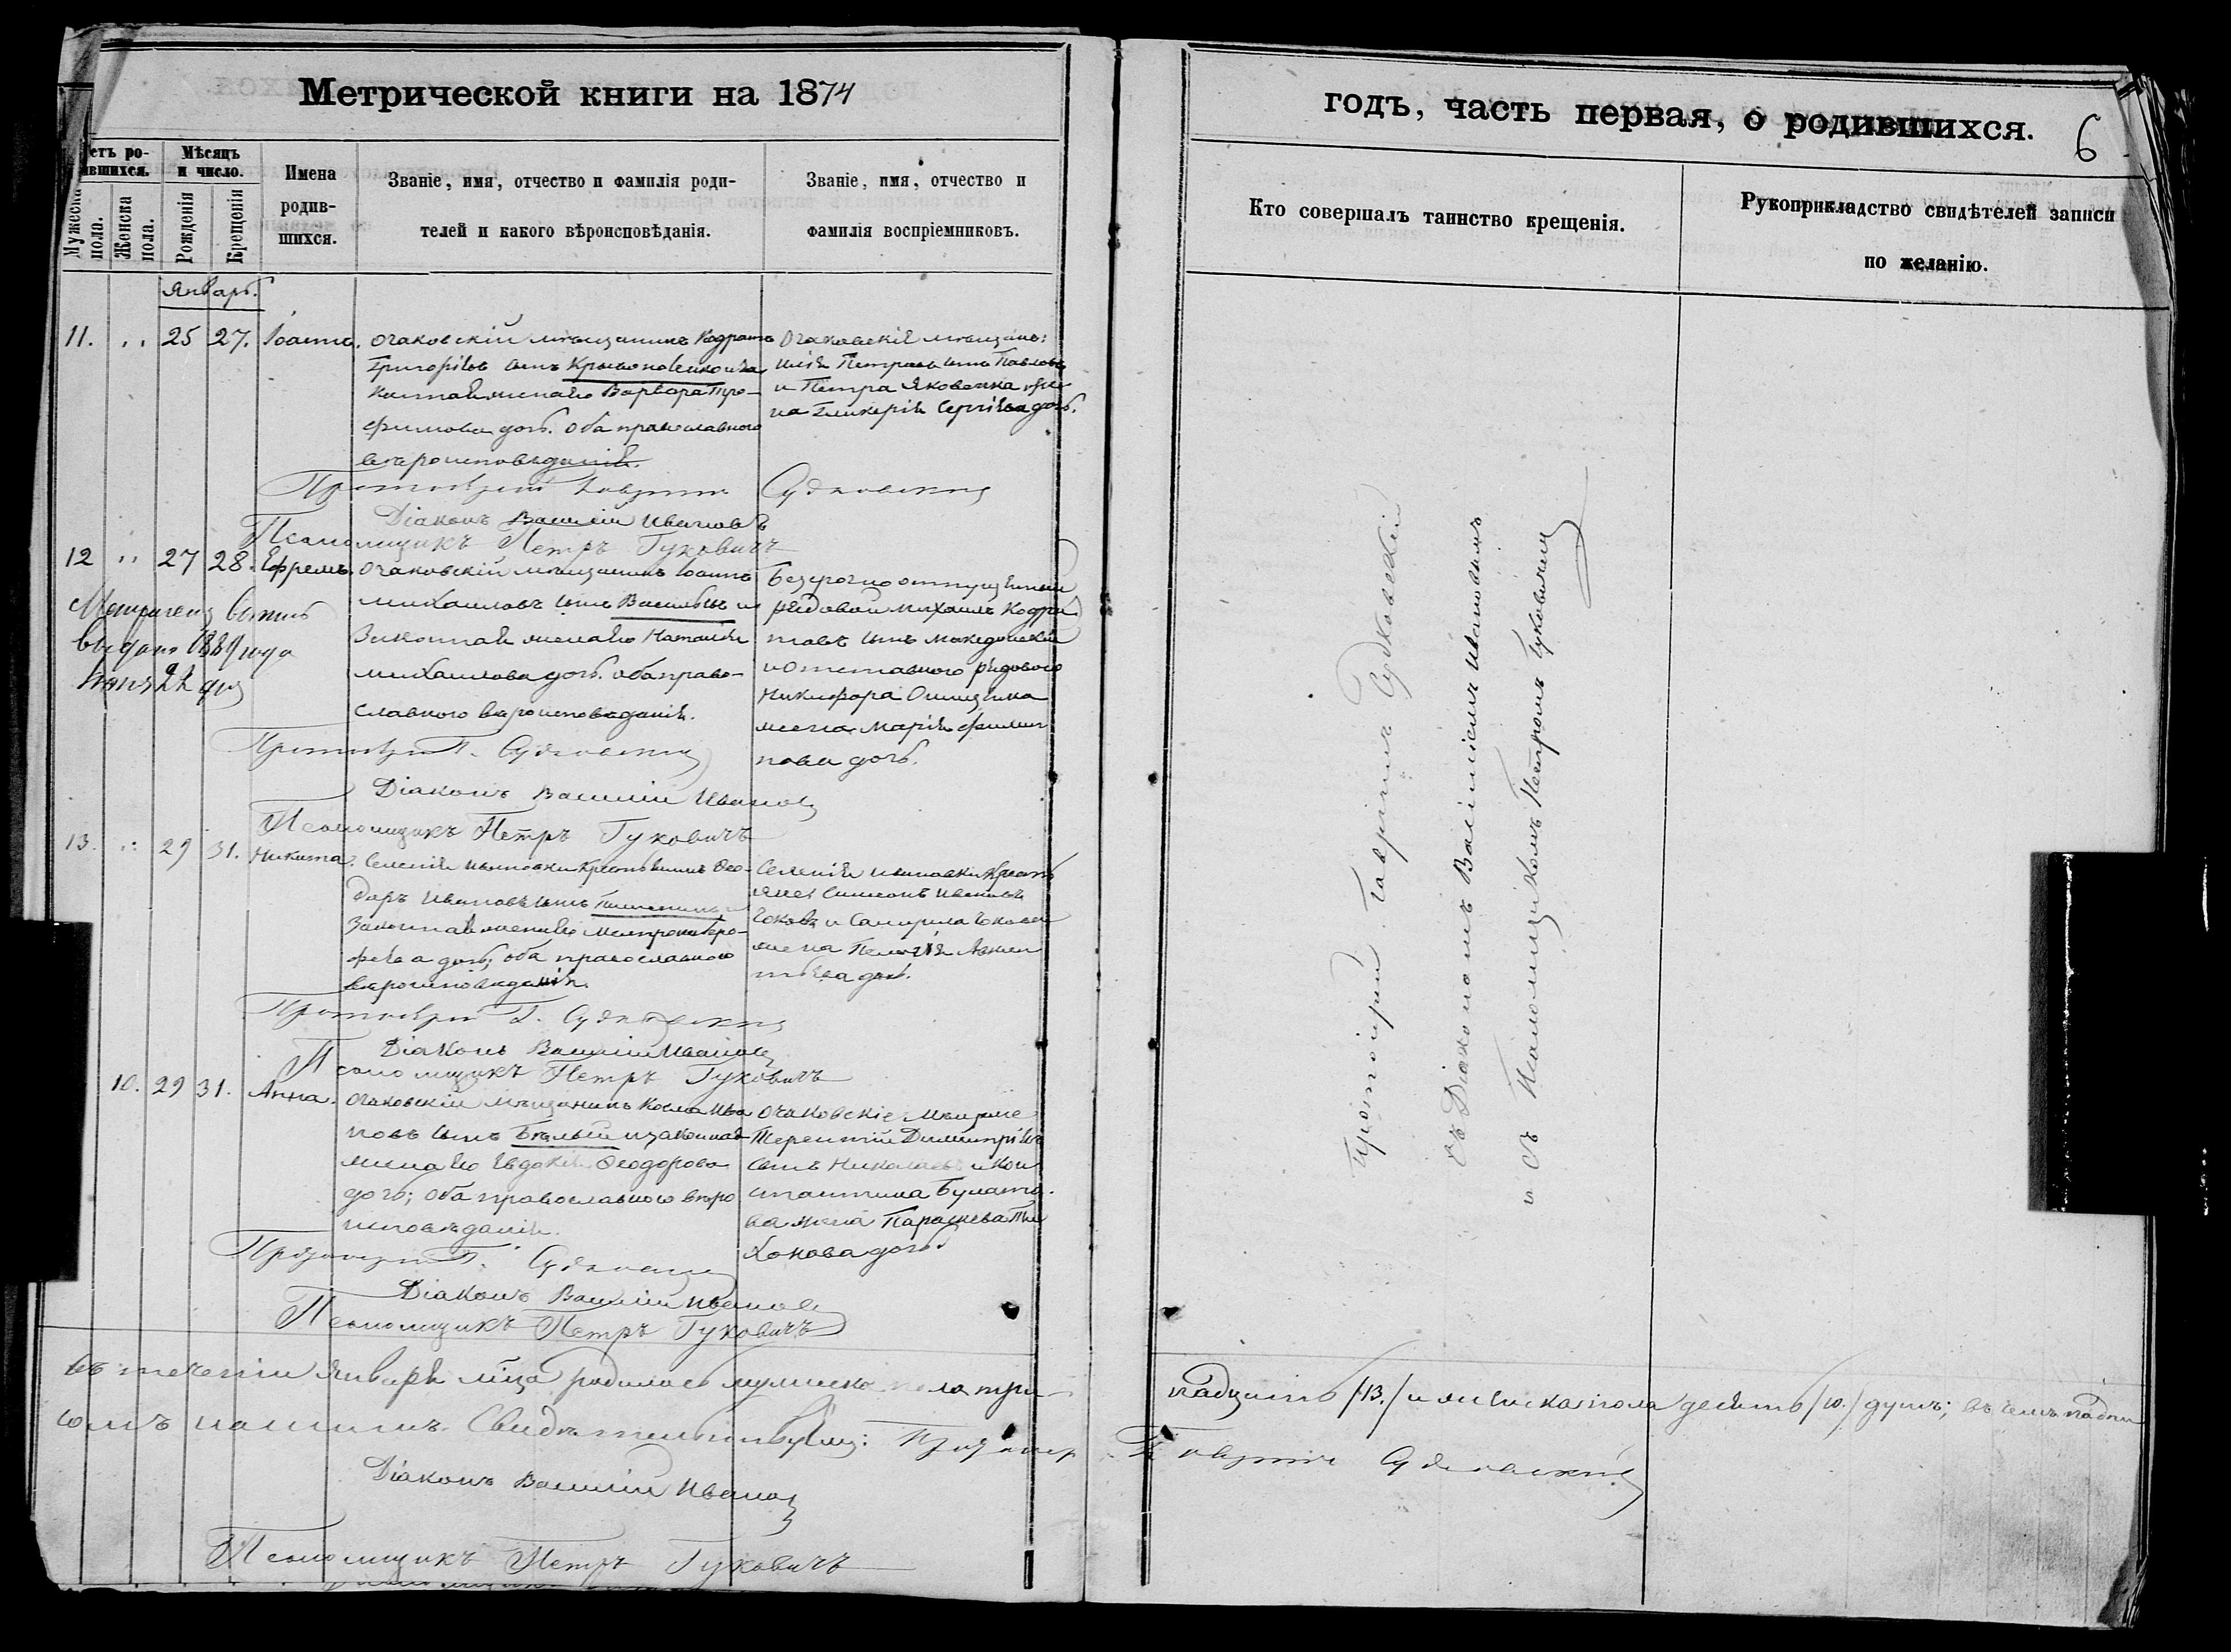 Метрической книги на 1874
годъ, часть первая, о родившихся.
6
етъ ро-
ившихся.
Мѣсяцъ
и число.
Мужеска
пола.
Женска
пола.
Рожденія
Крещенія
Имена
родив-
шихся.
Званіе, имя, отчество и фамилія роди-
телей и какого вѣроисповѣданія.
Званіе, имя, отчество и
фамилія воспріемниковъ.
Кто совершалъ таинство крещенія.
Рукоприкладство свидѣтелей записи
по желанію.
Январь.
11. " 25 27. Іоаннъ.
Очаковскій мѣщанинъ Кодратъ
Григоріевъ сынъ
законная жена его Варвара Тро-
фимова дочь. Оба православнаго
вѣроисповѣданія.
Очаковскіе мѣщане:
Павловъ
и Петра Яковенка же-
на Гликерія Сергіева дочь.
Протоіерей Гавріилъ Судковскій
Діаконъ Василій Ивановъ
Псаломщикъ Петръ Гуковичъ
12 " 27 28. Ефремъ.
Очаковскій мѣщанинъ Іоаннъ
Михаиловъ сынъ Васильевъ и
законная жена его Наталія
Михаилова дочь. оба право-
славнаго вѣроисповѣданія.
Безсрочно отпущенный
рядовой Михаилъ Кодра
товъ сынъ Македонскій
и отставного рядового
Никифора
жена Марія Филип
пова дочь.
Метричес
выдано 1889 года
22 дня
Протоіерей Г. Судковскій
Діаконъ Василій Ивановъ
Псаломщикъ Петръ Гуковичъ
13. " 29 31. Никита.
Селенія Ивановки крестьянинъ Ѳео-
доръ Ивановъ сынъ
законная жена его Митрона
дочь, оба православнаго
вѣроисповѣданія.
Селенія Ивановки крестья
Симеонъ Ивановъ
и
жена Пелагія
дочь.
Протоіерей Г. Судковскій
Діаконъ Василій Ивановъ
Псаломщикъ Петръ Гуковичъ
10. 29 31. Анна.
Очаковскій мѣщанинъ Косма Ива
новъ сынъ Бѣлый и законная
жена его Евдокія Ѳеодорова
дочь; оба православнаго вѣро
исповѣданія.
Очаковскіе мѣщане
Терентій Димитріевъ
сынъ Николаевъ и Кон
стантина Булато-
ва жена Параскева Ти
хонова дочь
Протоіерей Г. Судковскій
Діаконъ Василій Ивановъ
Псаломщикъ Петръ Гуковичъ
Протоіерей Гавріилъ Судковскій
съ Діакономъ Василіемъ Ивановымъ
и съ Псаломщикомъ Петромъ Гуковичемъ
Въ теченіи Января мѣсяца родилось мужеска пола три-
надцать /13./ и женска пола десять /10./ душъ; въ чемъ
Свидѣтельствуемъ: Протоіерей
Гавріилъ Судковскій
Діаконъ Василій Ивановъ
Псаломщикъ Петръ Гуковичъ